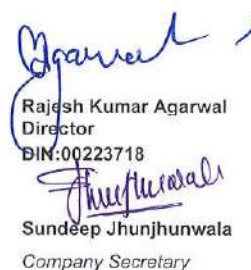 Agarwal
Rajesh Kumar Agarwal
Director
DIN:00223718
Jhunjhunwala
Sundeep Jhunjhunwala
Company Secretary